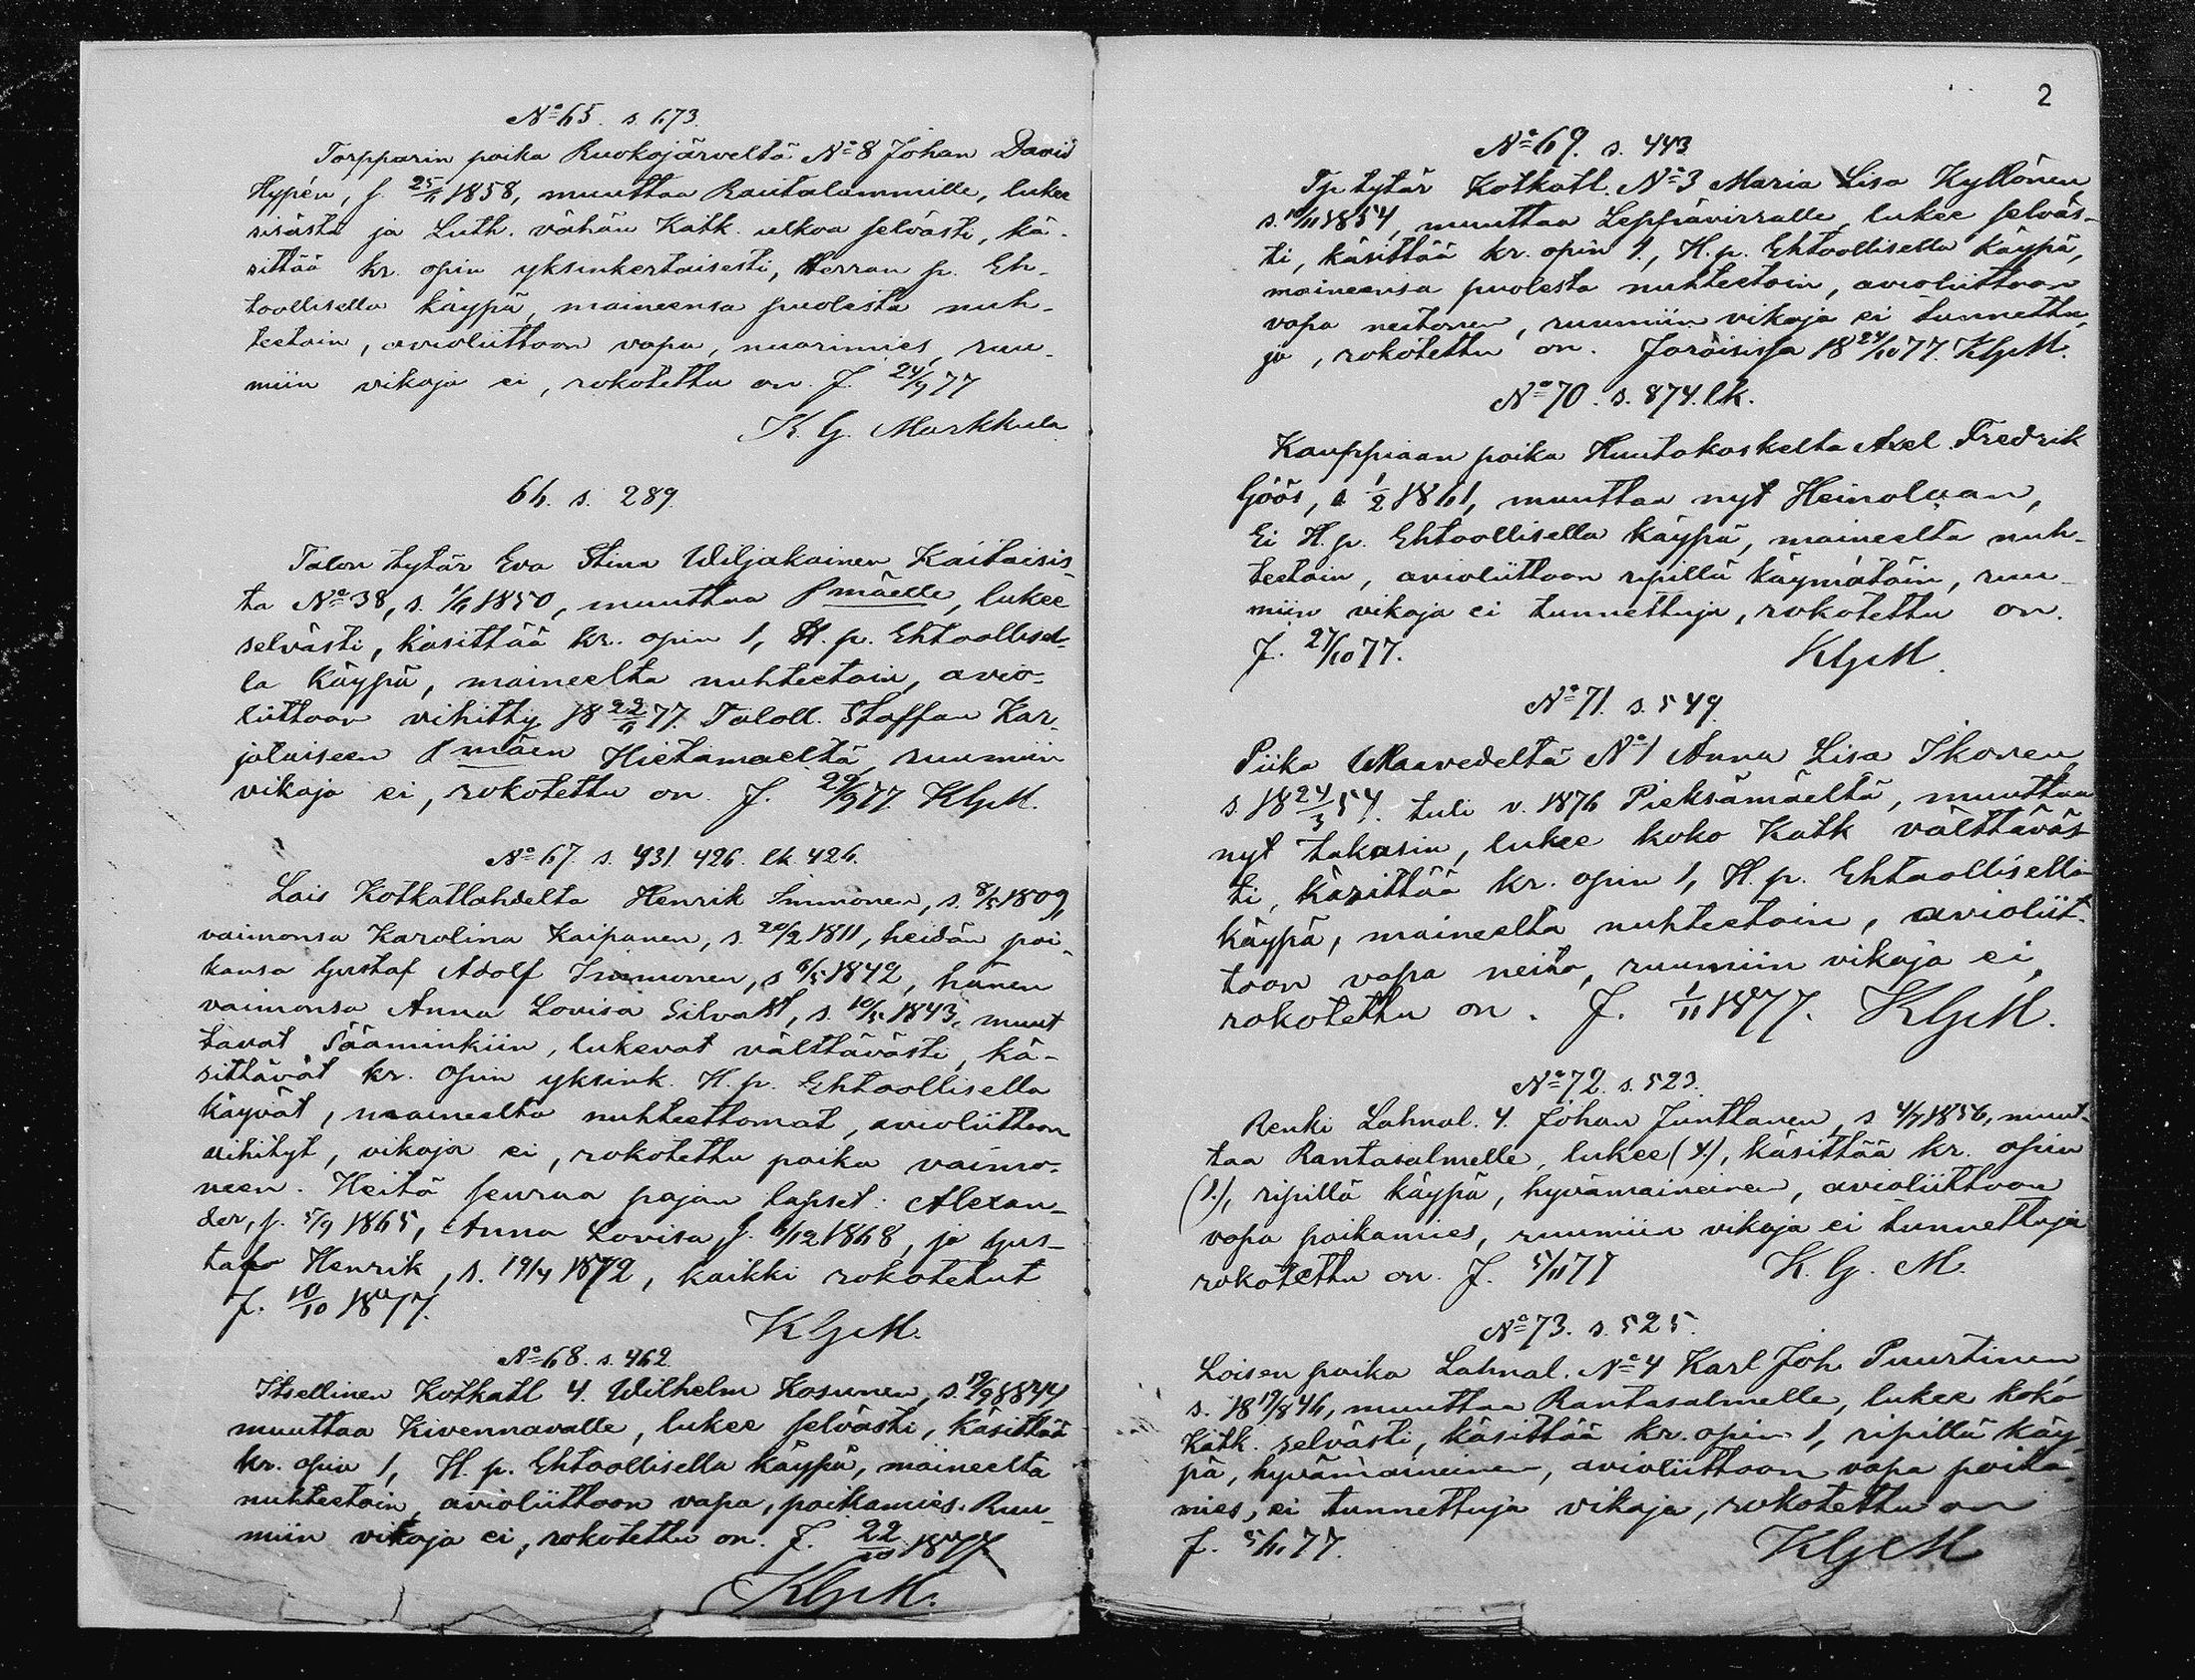 No 65. s. 673.
Torpparin poika Ruokojärveltä No 8 Johan David
Hypén, s. 25/11 1858, muuttaa Rautalammille, lukee
sisästä ja Luth. vähän Katk. ulkoa selvästi, kä-
sittää kr. opin yksinkertaisesti, Herran p. Eh-
toollisella käypä, maineensa puolesta nuh-
teetoin, avioliittoon vapa, nuorimies, ruu-
miin vikoja ei, rokotettu on. J. 24/9 77
K. G. Markkula
66. s. 289.
Talon tytär Eva Stina Wiljakainen Kaitaisis-
ta No 38, s. 1850, muuttaa Pmäelle, lukee
selvästi, käsittää kr. opin 1, H. p. Ehtoollisel-
la käypä, maineelta nuhteetoin, avio-
liittoon vihitty 18 77. Taloll. Staffan Kar-
jalaiseen Pmäen Hietamaelta, ruumiin
vikoja ei, rokotettu on. J. 29/9 77. KGM.
No 67. s. 431. 426. lk 426.
Lais Kotkatlahdelta Henrik Immonen, s. 8/5 1809,
vaimonsa Karolina Kaipanen, s. 20/2 1811, heidän poi-
kansa Gustaf Adolf Immonen, s 6/5 1842, hänen
vaimonsa Anna Lovisa s. 10/5 1843, muut
tavat Sääminkiin, lukevat välttävästi, kä-
sittävät kr. opin yksink. H. p. Ehtoollisella
käyvät, maineelta nuhteettomat, avioliittoon
vihityt, vikoja ei, rokotettu poika vaimo-
neen. Heitä seuraa pojan lapset: Alexan-
der, s. 5/9 1865, Anna Lovisa, s. 6/12 1868, ja Gus-
taf Henrik, s. 19/4 1872, kaikki rokotetut
J. 10/10 1877.
KGM.
No 68. s. 462.
Itsellinen Kotkatl 4. Wilhelm Kosunen, s.
muuttaa Kivennavalle, lukee selvästi, käsittää
kr. opin 1, H. p. Ehtoollisella käypä, maineelta
nuhteetoin, avioliittoon vapa, poikamies. Ruu-
miin vikoja ei, rokotettu on. J. 22/10 1877
KGM.
2
No 69. s. 443
Tp. tytär Kotkatl. No 3 Maria Lisa Kyllönen
s. 10/11 1854, muuttaa Leppävirralle, lukee selväs-
ti, käsittää kr. opin 1., H. p. Ehtoollisella käypä,
maineensa puolesta nuhteetoin, avioliittoon
vapa neitonen, ruumiin vikoja ei tunnettu
ja, rokotettu on. Joroisissa 18 24/10 77. KGM.
No 70. s. 874. lk.
Kauppiaan poika Huutokoskelta Axel Fredrik
Göös, s. 1/2 1861, muuttaa nyt Heinolaan,
Ei H. p. Ehtoollisella käypä, maineelta nuh-
teetoin, avioliittoon ripillä käymätöin, ruu-
miin vikoja ei tunnettuja, rokotettu on.
J. 27/10 77. KGM.
No 71. s. 549.
Piika Maavedeltä No 1 Anna Lisa Ikonen
s. 18 24/3 54. tuli v. 1876 Pieksämäeltä, muuttaa
nyt takasin, lukee koko Katk välttäväs-
ti, käsittää kr. opin 1, H. p. Ehtoollisella
käypä, maineelta nuhteetoin, avioliit-
toon vapa neito, ruumiin vikoja ei,
rokotettu on. J. 1/11 1877. KGM.
No 72. s. 523.
Renki Lahnal. 4. Johan Junttanen, s 4/7 1856, muut-
taa Rantasalmelle, lukee (4.), käsittää kr. opin
(1.), ripillä käypä, hyvämaineinen, avioliittoon
vapa poikamies, ruumiin vikoja ei tunnettuja
rokotettu on. J. 5/11 77 K. G. M.
No 73. s. 525.
Loisen poika Lahnal. No 4 Karl Joh. Puurtinen
s. 18 19/8 46, muuttaa Rantasalmelle, lukee koko
Katk. selvästi, käsittää kr. opin 1, ripillä käy-
pä, hyvämaineinen, avioliittoon vapa poika-
mies, ei tunnettuja vikoja, rokotettu on
J. 5/11 77. KGM